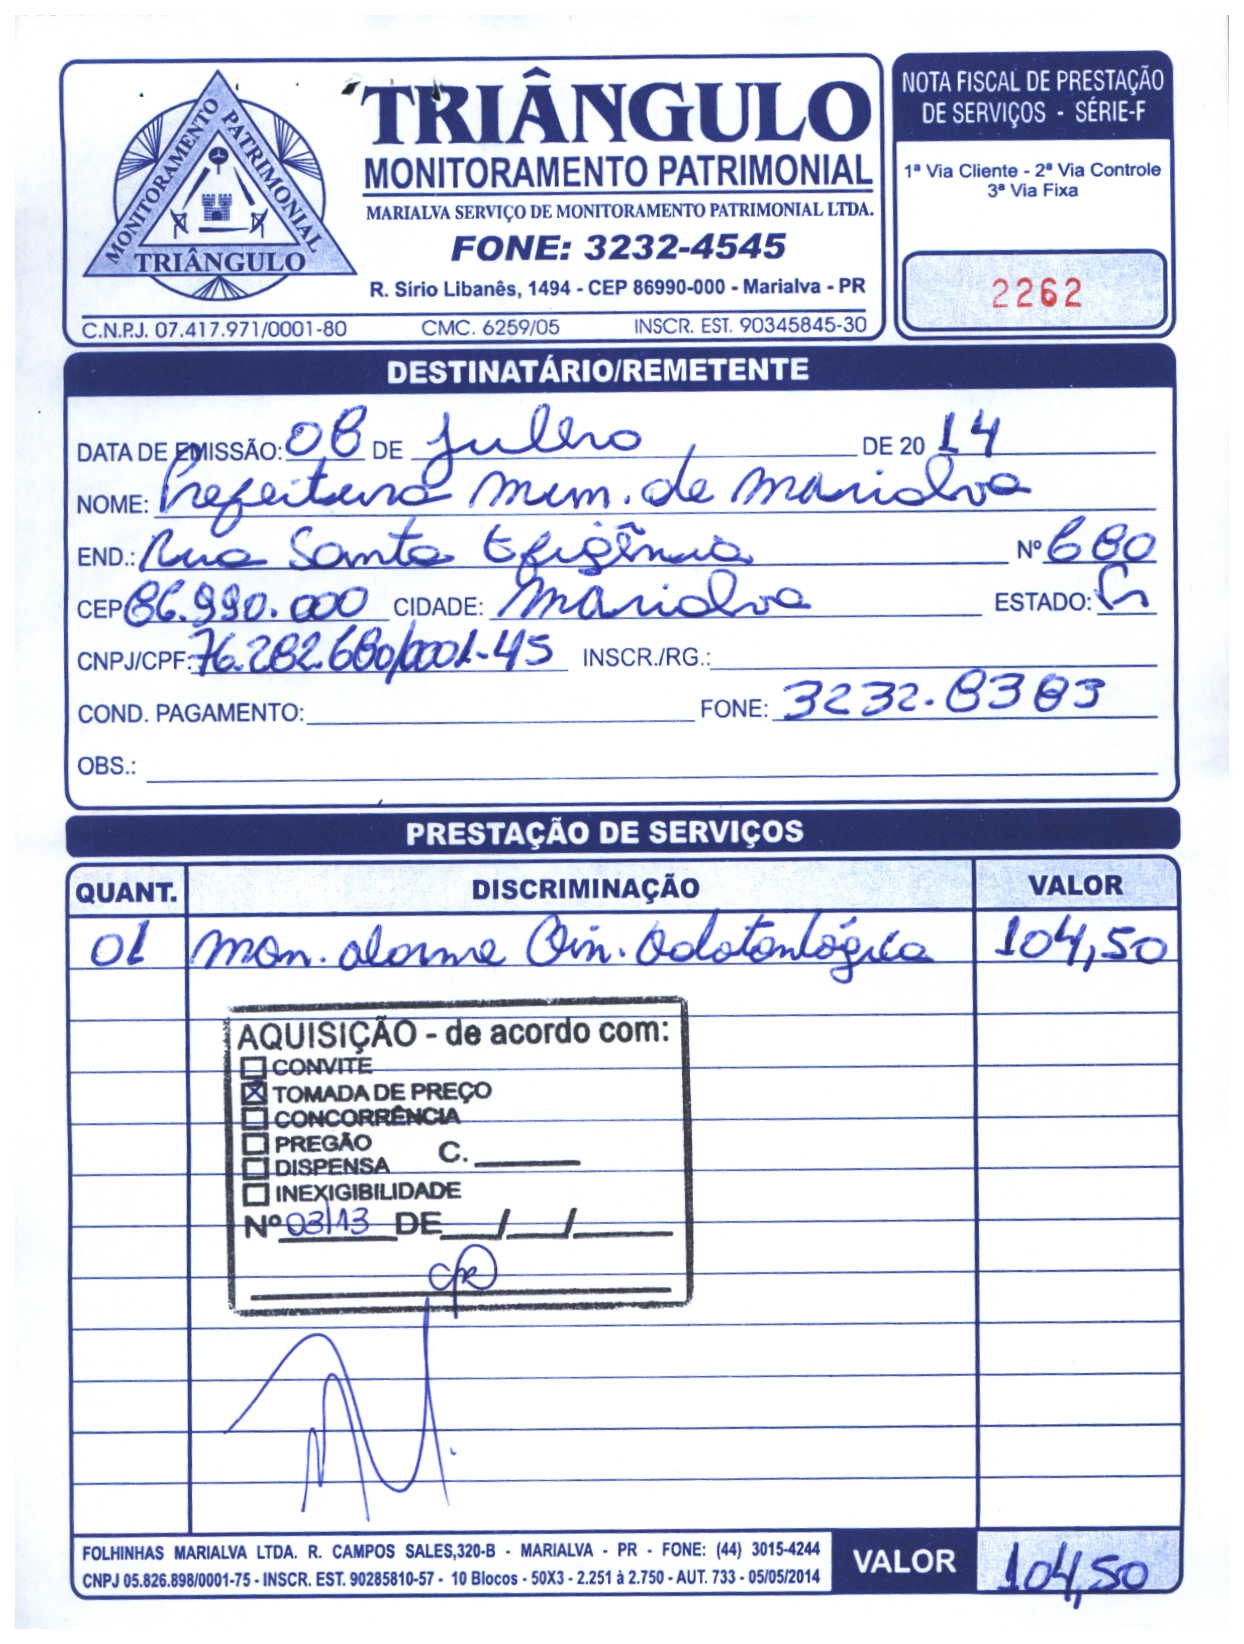 MONITORAMENTO PATRIMONIAL
TRIÂNGULO
TRIÂNGULO
MONITORAMENTO PATRIMONIAL
MARIALVA SERVIÇO DE MONITORAMENTO PATRIMONIAL LTDA.
FONE: 3232-4545
R. Sírio Libanês, 1494 - CEP 86990-000 - Marialva - PR
C.N.P.J. 07.417.971/0001-80 CMC. 6259/05 INSCR. EST. 90345845-30
NOTA FISCAL DE PRESTAÇÃO
DE SERVIÇOS - SÉRIE-F
1ª Via Cliente - 2ª Via Controle
3ª Via Fixa
2262
DESTINATÁRIO/REMETENTE
DATA DE EMISSÃO: 08 DE Julho DE 20 14
NOME: Prefeitura Mun. de Marialva
END.: Rua Santa Efigênia Nº 680
CEP 86.990.000 CIDADE: Marialva ESTADO: Pr
CNPJ/CPF: 76.282.680/0001-45 INSCR./RG.:
COND. PAGAMENTO: FONE: 3232.8383
OBS.:
PRESTAÇÃO DE SERVIÇOS
QUANT. DISCRIMINAÇÃO VALOR
01 Mon. alarme Clin. Odotonlógica 104,50
AQUISIÇÃO - de acordo com:
CONVITE
TOMADA DE PREÇO
CONCORRÊNCIA
PREGÃO
DISPENSA C.
INEXIGIBILIDADE
Nº 03/13 DE / /
FOLHINHAS MARIALVA LTDA. R. CAMPOS SALES,320-B - MARIALVA - PR - FONE: (44) 3015-4244
CNPJ 05.826.898/0001-75 - INSCR. EST. 90285810-57 - 10 Blocos - 50X3 - 2.251 à 2.750 - AUT. 733 - 05/05/2014
VALOR 104,50